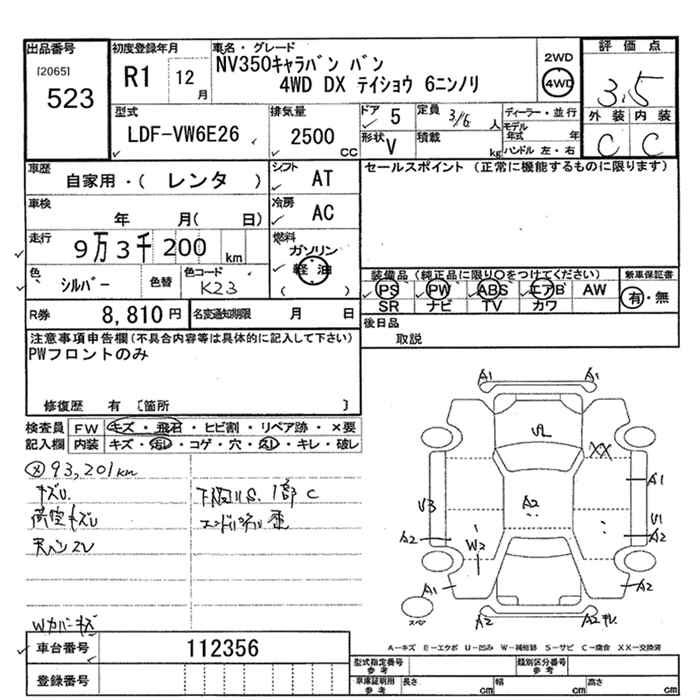 出品番号
[2065]
523
初度登録年月
R1 12月
車名・グレード
NV350キャラバン バン
4WD DX テイショウ 6ニンノリ
2WD
4WD
評価点
3.5
外装 内装
C C
型式
LDF-VW6E26
排気量
2500 CC
ドア 5
形状 V
定員 3/6 人
積載 kg
ディーラー・並行
モデル年式 年
ハンドル 左・右
車歴
自家用・( レンタ )
シフト AT
セールスポイント (正常に機能するものに限ります)
車検
年 月( 日)
冷房 AC
走行
9万3千200 km
燃料
ガソリン
軽油
( )
色 シルバー 色替
色コード K23
装備品 (純正品に限り○をつけてください)
PS PW ABS エアB AW
SR ナビ TV カワ
新車保証書
有・無
R券 8,810円
名変通知期限 月 日
後日品
取説
注意事項申告欄(不具合内容等は具体的に記入して下さい)
PWフロントのみ
修復歴 有 〔箇所 〕
検査員記入欄
FW キズ・飛石・ヒビ割・リペア跡・×要
内装 キズ・汚レ・コゲ・穴・スレ・キレ・破レ
93,201km
キズU
下廻りS.1部C
荷室キズU
天ペンZV
Wカバーキズ
A1 A1
VL
XX
A1
V3
A2
V1
A2
A2
W2
A1
A2
スペア
A2
A2キレ
車台番号 112356
登録番号
A-キズ E-エクボ U-凹み W-補修跡 S-サビ C-腐食 XX-交換済
型式指定番号 参考
類別区分番号 参考
車庫証明用 参考
長さ cm
幅 cm
高さ cm